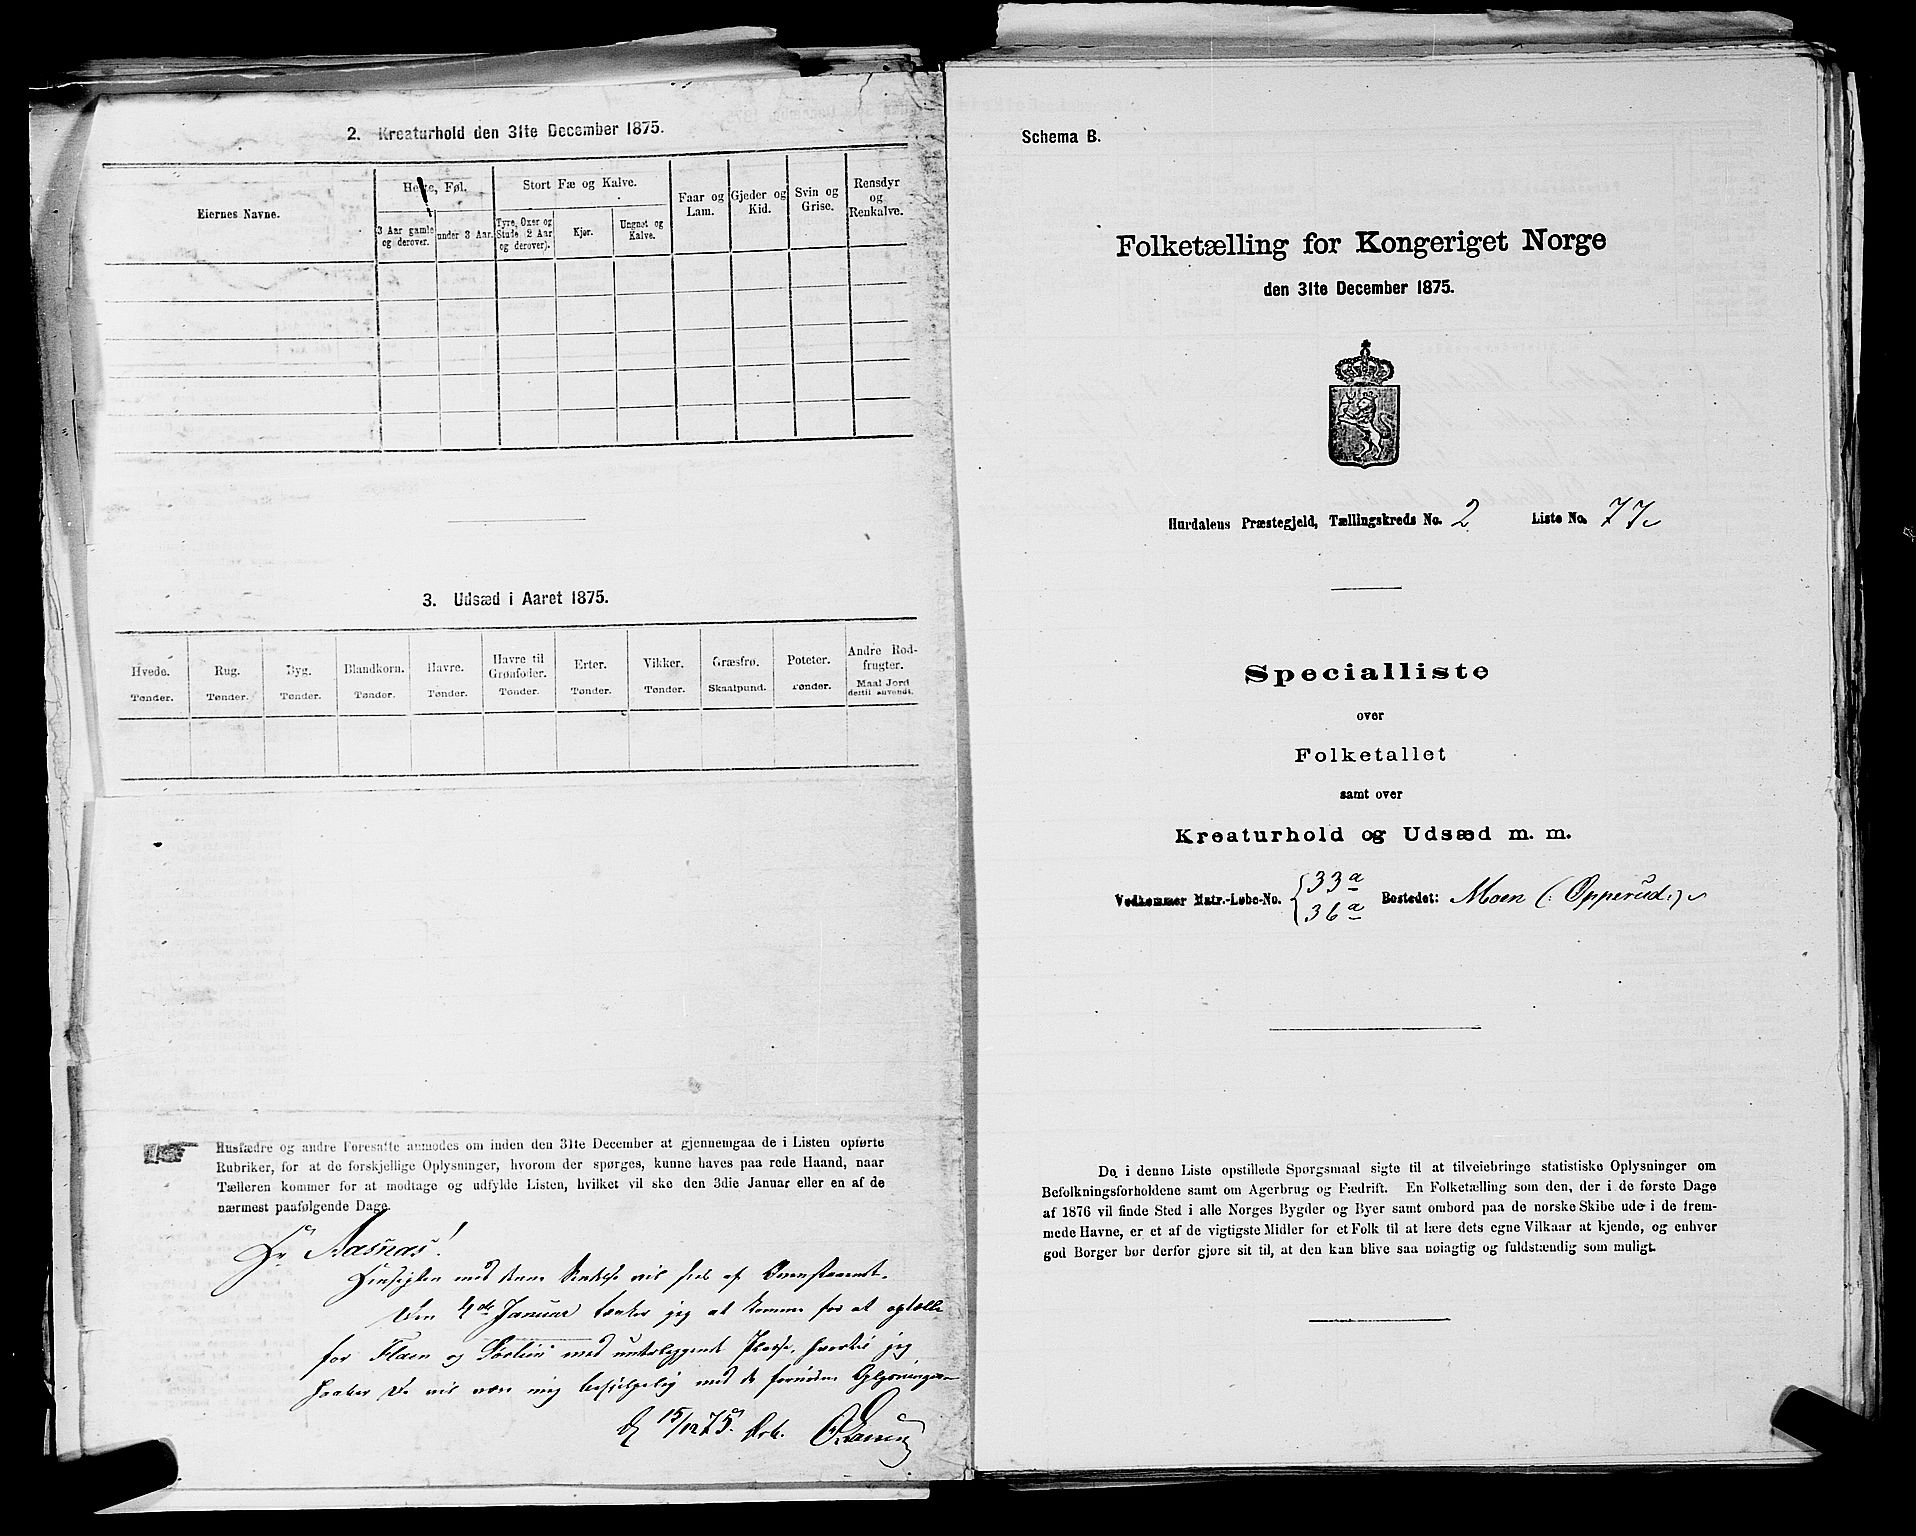 2. Kreaturhold den 31te December 1875.
Eiernes Navne.
Heste, Føl.
3 Aar gamle og derover.
under 3 Aar.
Stort Fæ og Kalve.
Tyre, Oxer og Stude (2 Aar og derover).
Kjør.
Ungnøt og Kalve.
Faar og Lam.
Gjeder og Kid.
Svin og Grise.
Rensdyr og Renkalve.
3. Udsæd i Aaret 1875.
Hvede. Tønder.
Rug. Tønder.
Byg. Tønder.
Blandkorn. Tønder.
Havre. Tønder.
Havre til Grønfoder. Tønder.
Erter. Tønder.
Vikker. Tønder.
Græsfrø. Skaalpund.
Poteter. Tønder.
Andre Rodfrugter. Maal Jord dertil anvendt.
Husfædre og andre Foresatte anmodes om inden den 31te December at gjennemgaa de i Listen opførte
Rubriker, for at de forskjellige Oplysninger, hvorom der spørges, kunne haves paa rede Haand, naar
Tælleren kommer for at modtage og udfylde Listen, hvilket vil ske den 3die Januar eller en af de
nærmest paafølgende Dage.
Hr Aasnæs!
Hensigten med denne vil sees af Ovenstaaende.
Den 4de Januar tænker jeg at komme for at optælle
for Flaen og med underliggende Pladse, hvortil jeg
haaber De vil være mig behjelpelig med de fornødne Oplysninger
15/12 75.
Schema B.
Folketælling for Kongeriget Norge
den 31te December 1875.
Hurdalens Præstegjeld, Tællingskreds No. 2 Liste No. 77
Specialliste
over
Folketallet
samt over
Kreaturhold og Udsæd m. m.
Vedkommer Matr.-Løbe-No. { 33a 36a Bostedet: Moen (: Opperud :)
De i denne Liste opstillede Spørgsmaal sigte til at tilveiebringe statistiske Oplysninger om
Befolkningsforholdene samt om Agerbrug og Fædrift. En Folketælling som den, der i de første Dage
af 1876 vil finde Sted i alle Norges Bygder og Byer samt ombord paa de norske Skibe ude i de frem-
mede Havne, er et af de vigtigste Midler for et Folk til at lære dets egne Vilkaar at kjende, og enhver
god Borger bør derfor gjøre sit til, at den kan blive saa nøiagtig og fuldstændig som muligt.